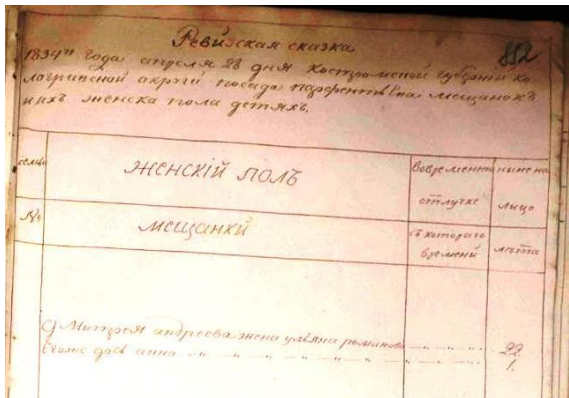 Ревизская сказка
852
1834го года апреля 28 дня костромской губернии ко
логривской округи посада парфентьева мещанокъ
ихъ женска пола детяхъ.
семьи
женскій полъ
во временной
отлучке
ныне на
лицо
№
мещанкй
съ котораго
времени
лѣта
Митрея андреева жена ульяна романова 22
анна 1.